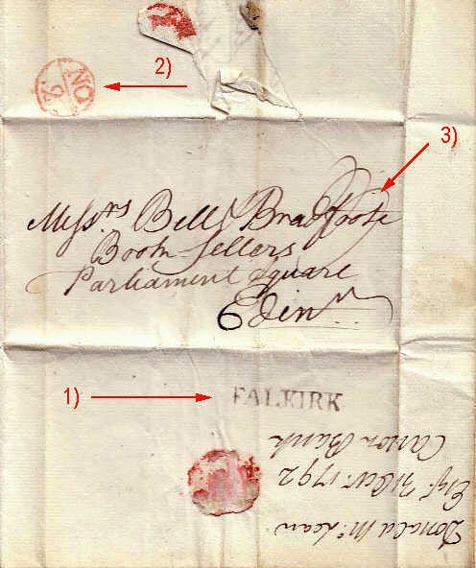 2)
NO
3)
Messrs Bell Bradfoote
Book Sellers
Parliament Square
Edinr
1)
FALKIRK
Donald McLean
Esqr. 1792
Carron Bank